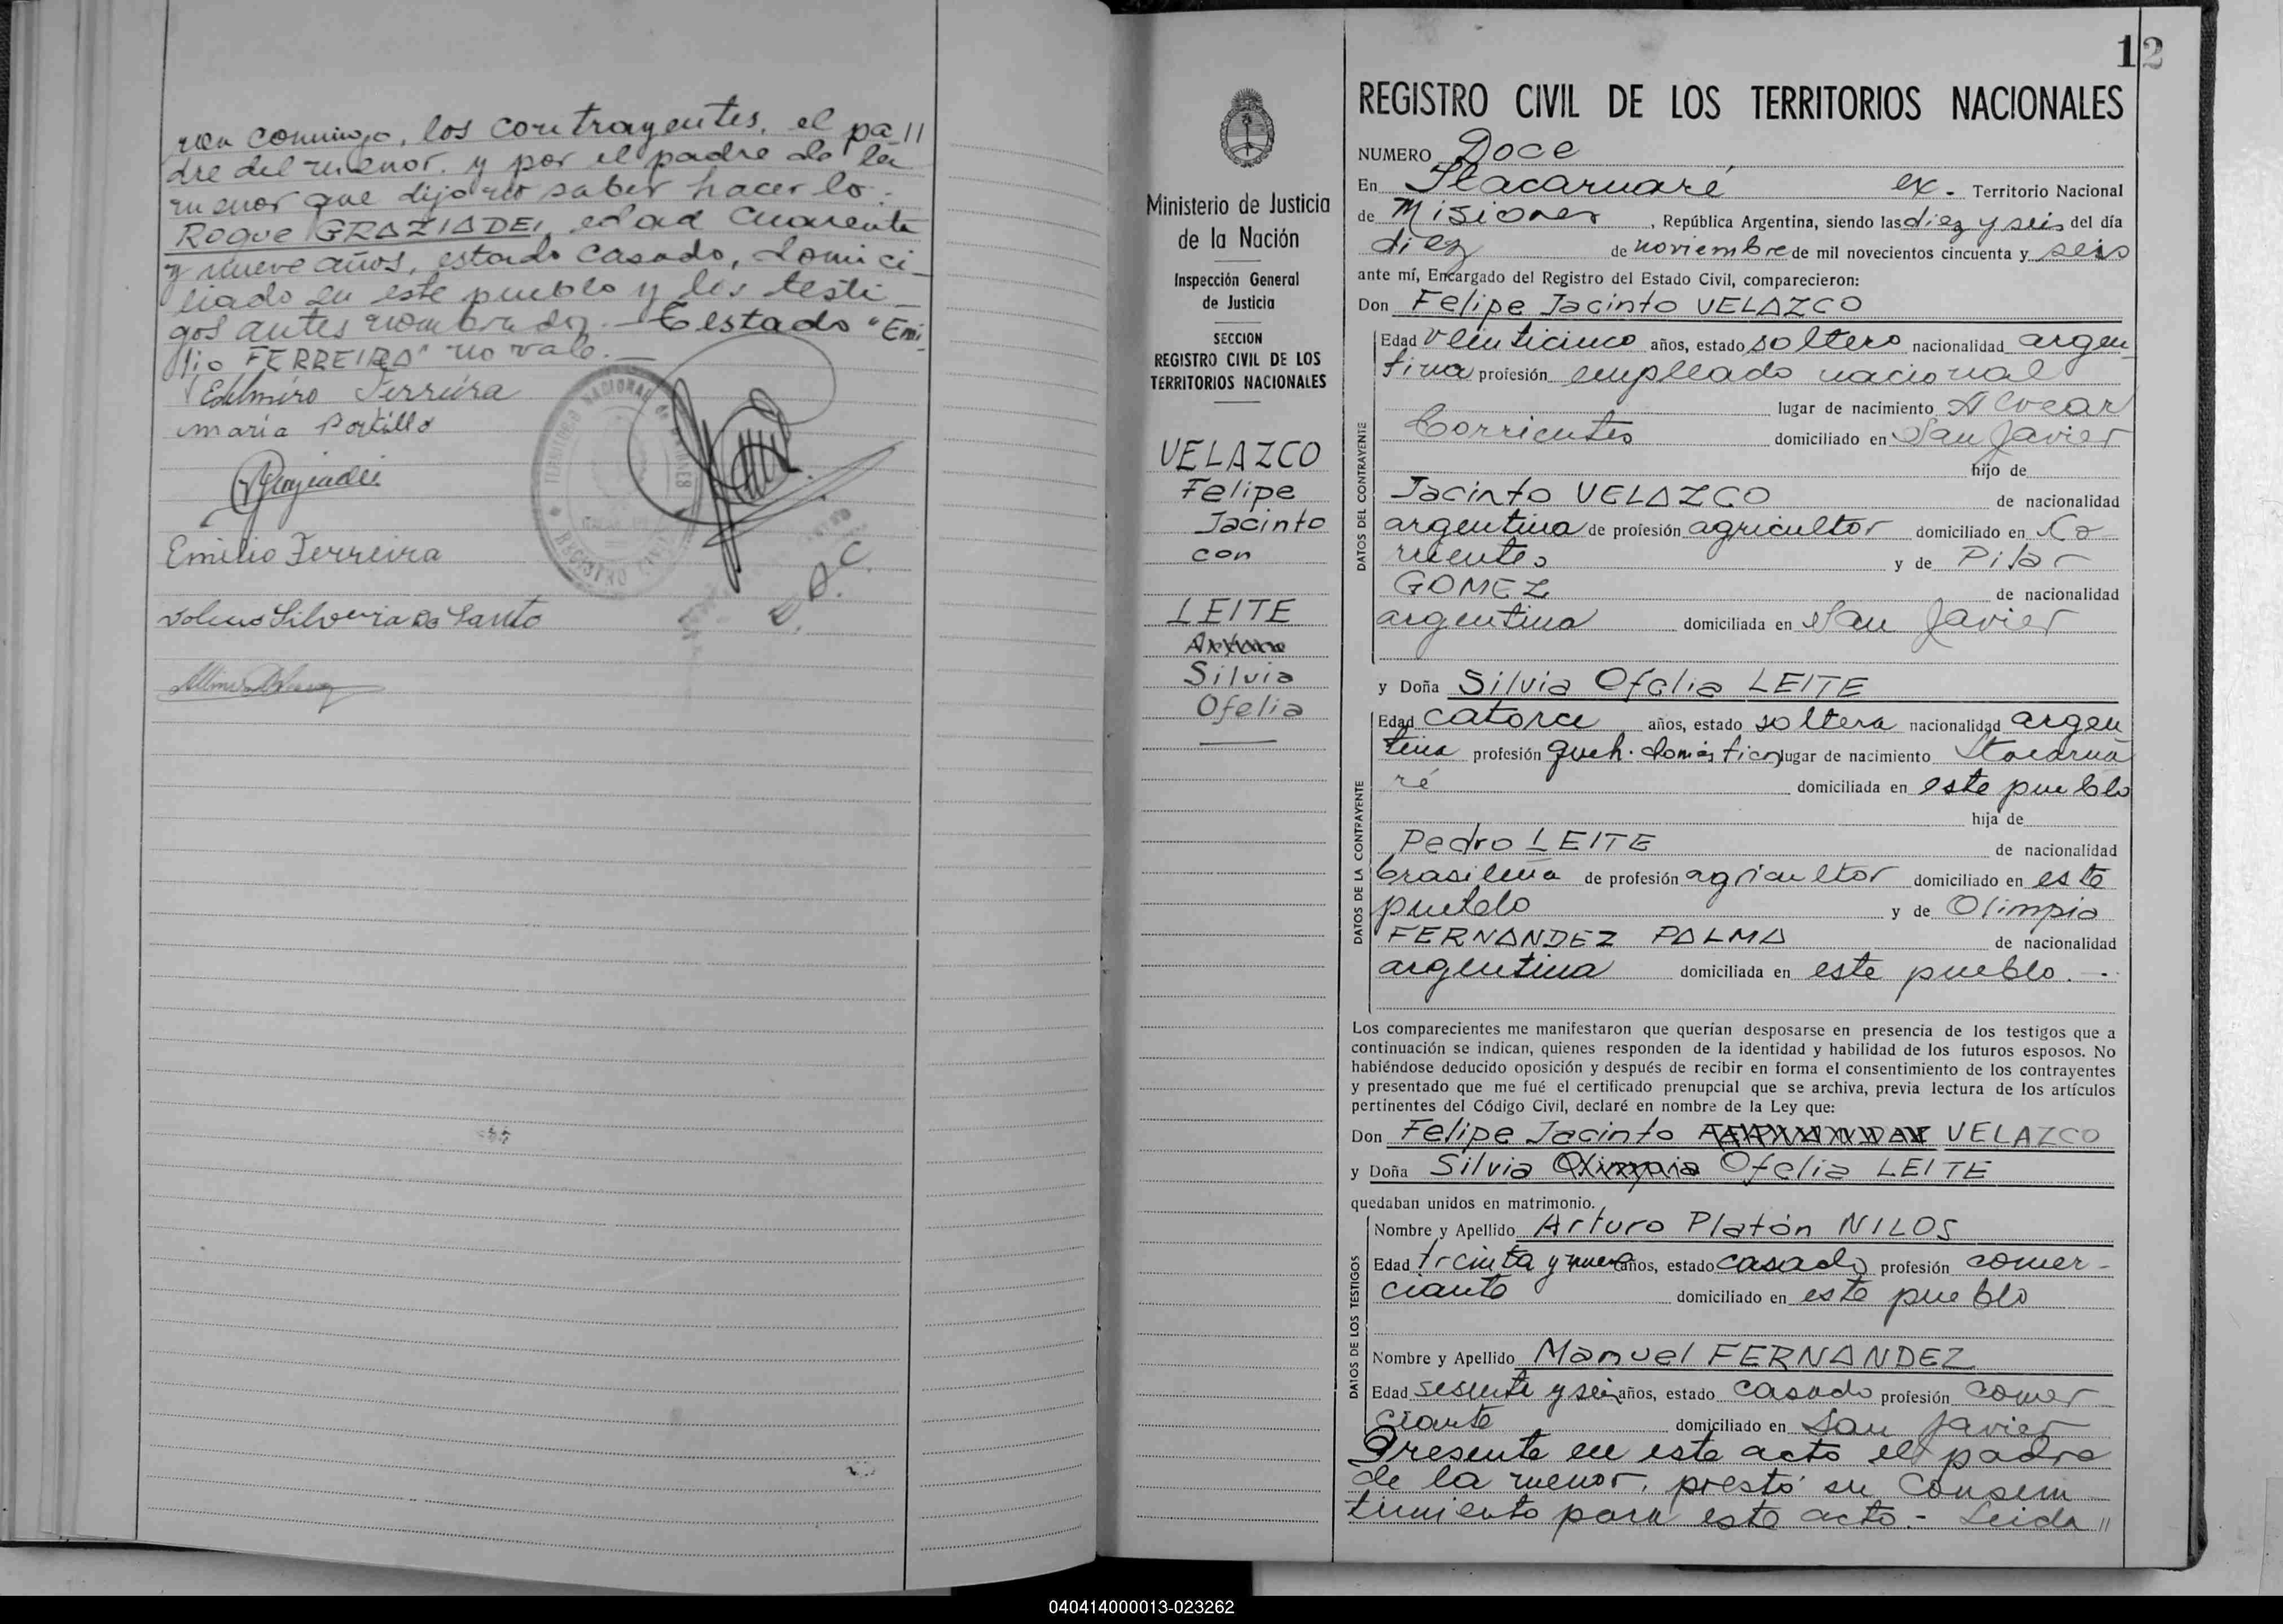 con conmigo, los contrayentes, el pa//
dre del menor, y por el padre de la
menor que dijo no saber hacerlo.
Roque GRAZIADEI, edad cuarenta
y nueve años, estado casado, domici-
liado en este pueblo y los testi-
gos antes nombrados.- Testado "Emi-
lio FERREIRA" no vale.-
Edelmiro Ferreira
maria Portillo
RGraziadei
Emilio Ferreira
Silveira Do Santo
REGISTRO CIVIL
12
Ministerio de Justicia
de la Nación
Inspección General
de Justicia
SECCION
REGISTRO CIVIL DE LOS
TERRITORIOS NACIONALES
VELAZCO
Felipe
Jacinto
con
LEITE
Silvia
Ofelia
REGISTRO CIVIL DE LOS TERRITORIOS NACIONALES
NUMERO Doce
En Itacaruaré ex- Territorio Nacional
de Misiones, República Argentina, siendo las diez y seis del día
diez de noviembre de mil novecientos cincuenta y seis
ante mí, Encargado del Registro del Estado Civil, comparecieron:
Don Felipe Jacinto VELAZCO
DATOS DEL CONTRAYENTE
Edad veinticinco años, estado soltero nacionalidad argen
tina profesión empleado nacional
lugar de nacimiento Alvear
Corrientes domiciliado en San Javier
hijo de
Jacinto VELAZCO de nacionalidad
argentina de profesión agricultor domiciliado en Co
rrientes y de Pilar
GOMEZ de nacionalidad
argentina domiciliada en San Javier
y Doña Silvia Ofelia LEITE
DATOS DE LA CONTRAYENTE
Edad catorce años, estado soltera nacionalidad argen
tina profesión queh. domésticos lugar de nacimiento Itacarua
ré domiciliada en este pueblo
hija de
Pedro LEITE de nacionalidad
brasileña de profesión agricultor domiciliado en este
pueblo y de Olimpia
FERNANDEZ PALMA de nacionalidad
argentina domiciliada en este pueblo.-
Los comparecientes me manifestaron que querían desposarse en presencia de los testigos que a
continuación se indican, quienes responden de la identidad y habilidad de los futuros esposos. No
habiéndose deducido oposición y después de recibir en forma el consentimiento de los contrayentes
y presentado que me fué el certificado prenupcial que se archiva, previa lectura de los artículos
pertinentes del Código Civil, declaré en nombre de la Ley que:
Don Felipe Jacinto VELAZCO
y Doña Silvia Olimpia Ofelia LEITE
quedaban unidos en matrimonio.
DATOS DE LOS TESTIGOS
Nombre y Apellido Arturo Platón NILOS
Edad treinta y nueve años, estado casado profesión comer-
ciante domiciliado en este pueblo
Nombre y Apellido Manuel FERNANDEZ
Edad sesenta y seis años, estado casado profesión comer
ciante domiciliado en San Javier
Presente en este acto el padre
de la menor, prestó su consen
timiento para este acto.- Leida //
040414000013-023262